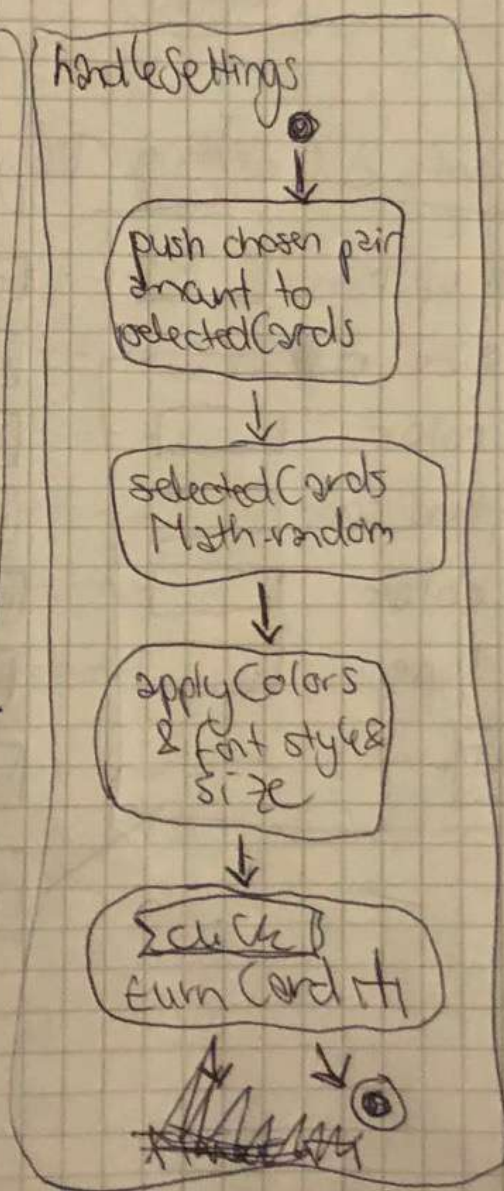 handleSettings
push chosen pair
amount to
selectedCards
selectedCards
Math.random
applyColors
& font style &
size
click
turnCard